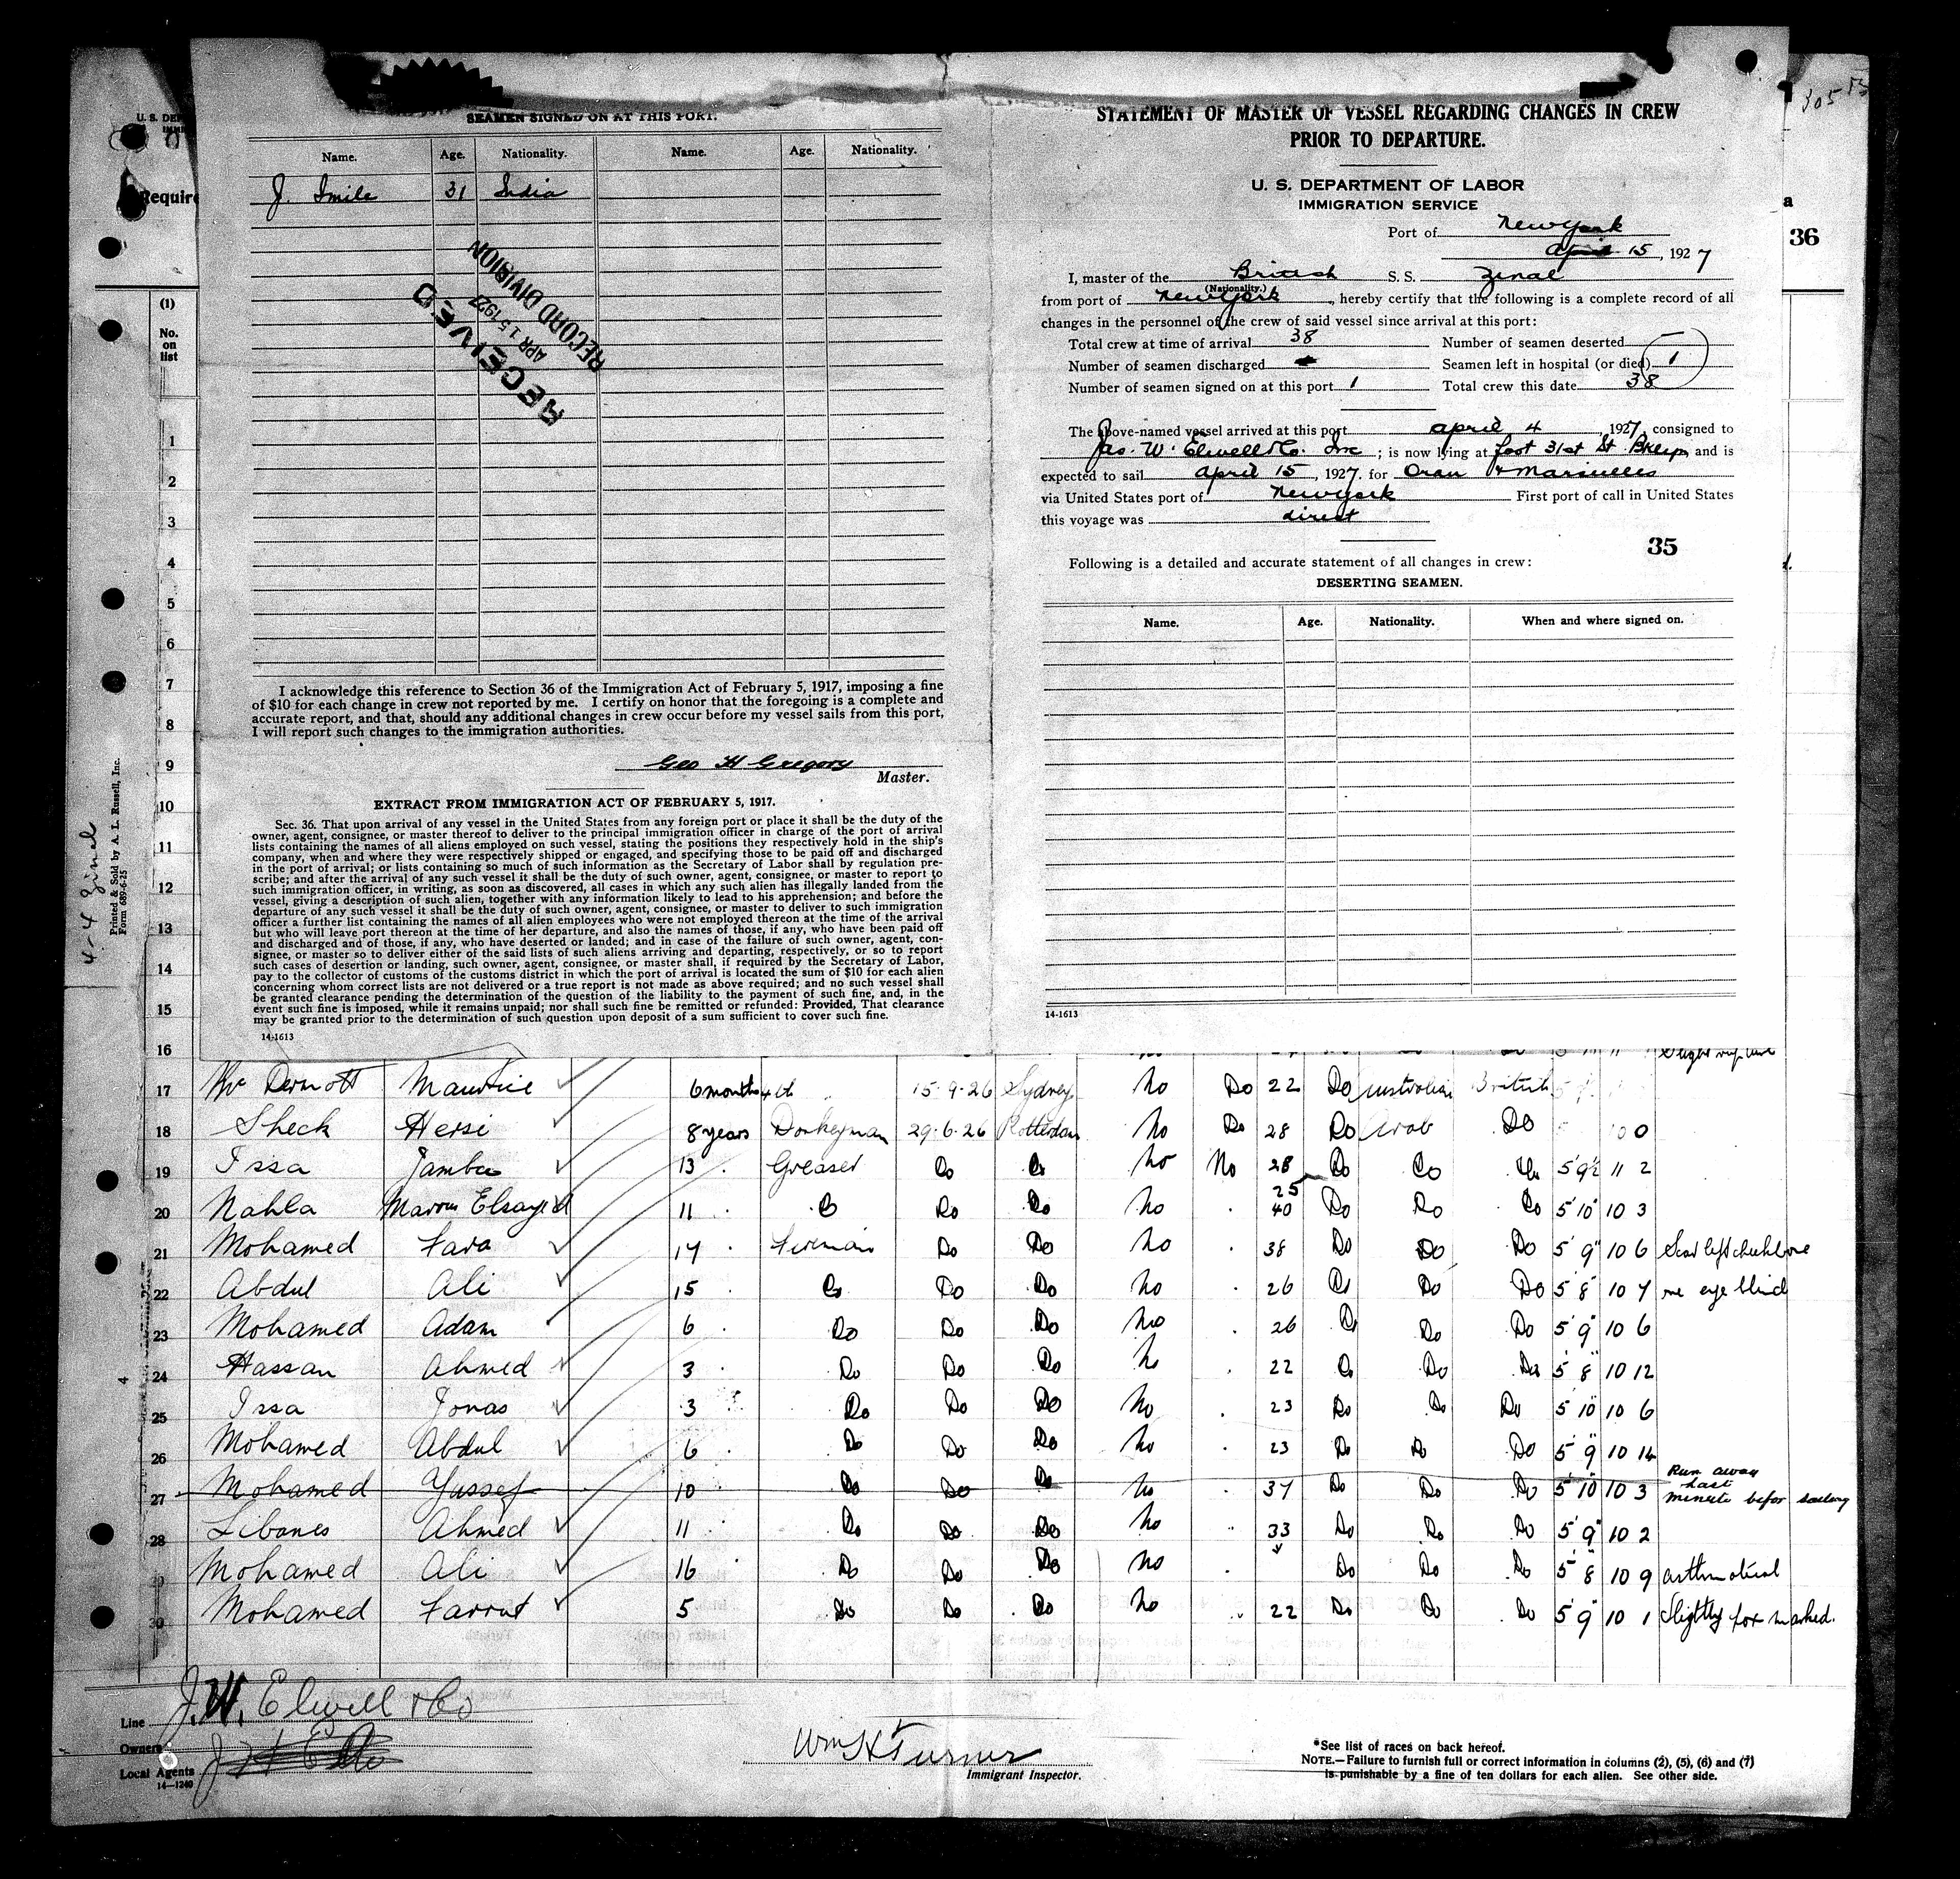 305
U. S. DEP
Require
a
36
(1)
No.
on
list
SEAMEN SIGNED ON AT THIS PORT.
Name. Age. Nationality. Name. Age. Nationality.
J. Smile 31 India
RECEIVED
APR 15 1927
RECORD DIVISION
I acknowledge this reference to Section 36 of the Immigration Act of February 5, 1917, imposing a fine
of $10 for each change in crew not reported by me. I certify on honor that the foregoing is a complete and
accurate report, and that, should any additional changes in crew occur before my vessel sails from this port,
I will report such changes to the immigration authorities.
Geo H Gregory
Master.
EXTRACT FROM IMMIGRATION ACT OF FEBRUARY 5, 1917.
Sec. 36. That upon arrival of any vessel in the United States from any foreign port or place it shall be the duty of the
owner, agent, consignee, or master thereof to deliver to the principal immigration officer in charge of the port of arrival
lists containing the names of all aliens employed on such vessel, stating the positions they respectively hold in the ship's
company, when and where they were respectively shipped or engaged, and specifying those to be paid off and discharged
in the port of arrival; or lists containing so much of such information as the Secretary of Labor shall by regulation pre-
scribe; and after the arrival of any such vessel it shall be the duty of such owner, agent, consignee, or master to report to
such immigration officer, in writing, as soon as discovered, all cases in which any such alien has illegally landed from the
vessel, giving a description of such alien, together with any information likely to lead to his apprehension; and before the
departure of any such vessel it shall be the duty of such owner, agent, consignee, or master to deliver to such immigration
officer a further list containing the names of all alien employees who were not employed thereon at the time of the arrival
but who will leave port thereon at the time of her departure, and also the names of those, if any, who have been paid off
and discharged and of those, if any, who have deserted or landed; and in case of the failure of such owner, agent, con-
signee, or master so to deliver either of the said lists of such aliens arriving and departing, respectively, or so to report
such cases of desertion or landing, such owner, agent, consignee, or master shall, if required by the Secretary of Labor,
pay to the collector of customs of the customs district in which the port of arrival is located the sum of $10 for each alien
concerning whom correct lists are not delivered or a true report is not made as above required; and no such vessel shall
be granted clearance pending the determination of the question of the liability to the payment of such fine, and, in the
event such fine is imposed, while it remains unpaid; nor shall such fine be remitted or refunded: Provided, That clearance
may be granted prior to the determination of such question upon deposit of a sum sufficient to cover such fine.
14-1613
STATEMENT OF MASTER OF VESSEL REGARDING CHANGES IN CREW
PRIOR TO DEPARTURE.
U. S. DEPARTMENT OF LABOR
IMMIGRATION SERVICE
Port of New York
April 15, 1927
I, master of the British S. S. Zinal
(Nationality.)
from port of New York, hereby certify that the following is a complete record of all
changes in the personnel of the crew of said vessel since arrival at this port:
Total crew at time of arrival 38 Number of seamen deserted -
Number of seamen discharged Seamen left in hospital (or died) 1
Number of seamen signed on at this port 1 Total crew this date 38
The above-named vessel arrived at this port april 4, 1927, consigned to
Jas. W. Elwell & Co. Inc; is now lying at foot 31st St Bklyn and is
expected to sail april 15, 1927. for Oran & Marseilles
via United States port of New York First port of call in United States
this voyage was direct
35
Following is a detailed and accurate statement of all changes in crew:
DESERTING SEAMEN.
Name. Age. Nationality. When and where signed on.
14-1613
4-4 Zinal
Printed & Sold by A. L. Russell, Inc.
Form 689-6-25
1
2
3
4
5
6
7
8
9
10
11
12
13
14
15
16
17 Mc Dermott Maurice 6 months 4th 15-9-26 Sydney No Do 22 Do Australian British
18 Sheck Hersi 8 years Donkeyman 29-6-26 Rotterdam No Do 28 Do Arab Do
19 Issa Jambu 13 Greaser Do Do No No 28 Do Do Do 5'9½ 11 2
20 Nahla Marou Elsayed 11 Do Do Do No 25 40 Do Do Do 5 10 10 3
21 Mohamed Fara 14 Fireman Do Do No 38 Do Do Do 5 9" 10 6 Scar left cheekbone
22 Abdul Ali 15 Do Do Do No 26 Do Do Do 5 8 10 7 one eye blind
23 Mohamed Adam 6 Do Do Do No 26 Do Do Do 5 9" 10 6
24 Hassan Ahmed 3 Do Do Do No 22 Do Do Do 5 8 10 12
25 Issa Jonas 3 Do Do Do No 23 Do Do Do 5 10 10 6
26 Mohamed Abdul 6 Do Do Do No 23 Do Do Do 5 9" 10 14
27 Mohamed Yussef 10 Do Do Do No 37 Do Do Do 5 10 10 3 Run away last minute befor sailing
28 Libanes Ahmed 11 Do Do Do No 33 Do Do Do 5 9" 10 2
29 Mohamed Ali 16 Do Do Do No Do Do Do 5 8 10 9 asthmatical
30 Mohamed Farrut 5 Do Do Do No 22 Do Do Do 5 9" 10 1 Slightly pox marked.
Line J. W. Elwell & Co
Owners
Local Agents
14-1240
Wm H Turner
Immigrant Inspector.
*See list of races on back hereof.
NOTE.—Failure to furnish full or correct information in columns (2), (5), (6) and (7)
is punishable by a fine of ten dollars for each alien. See other side.